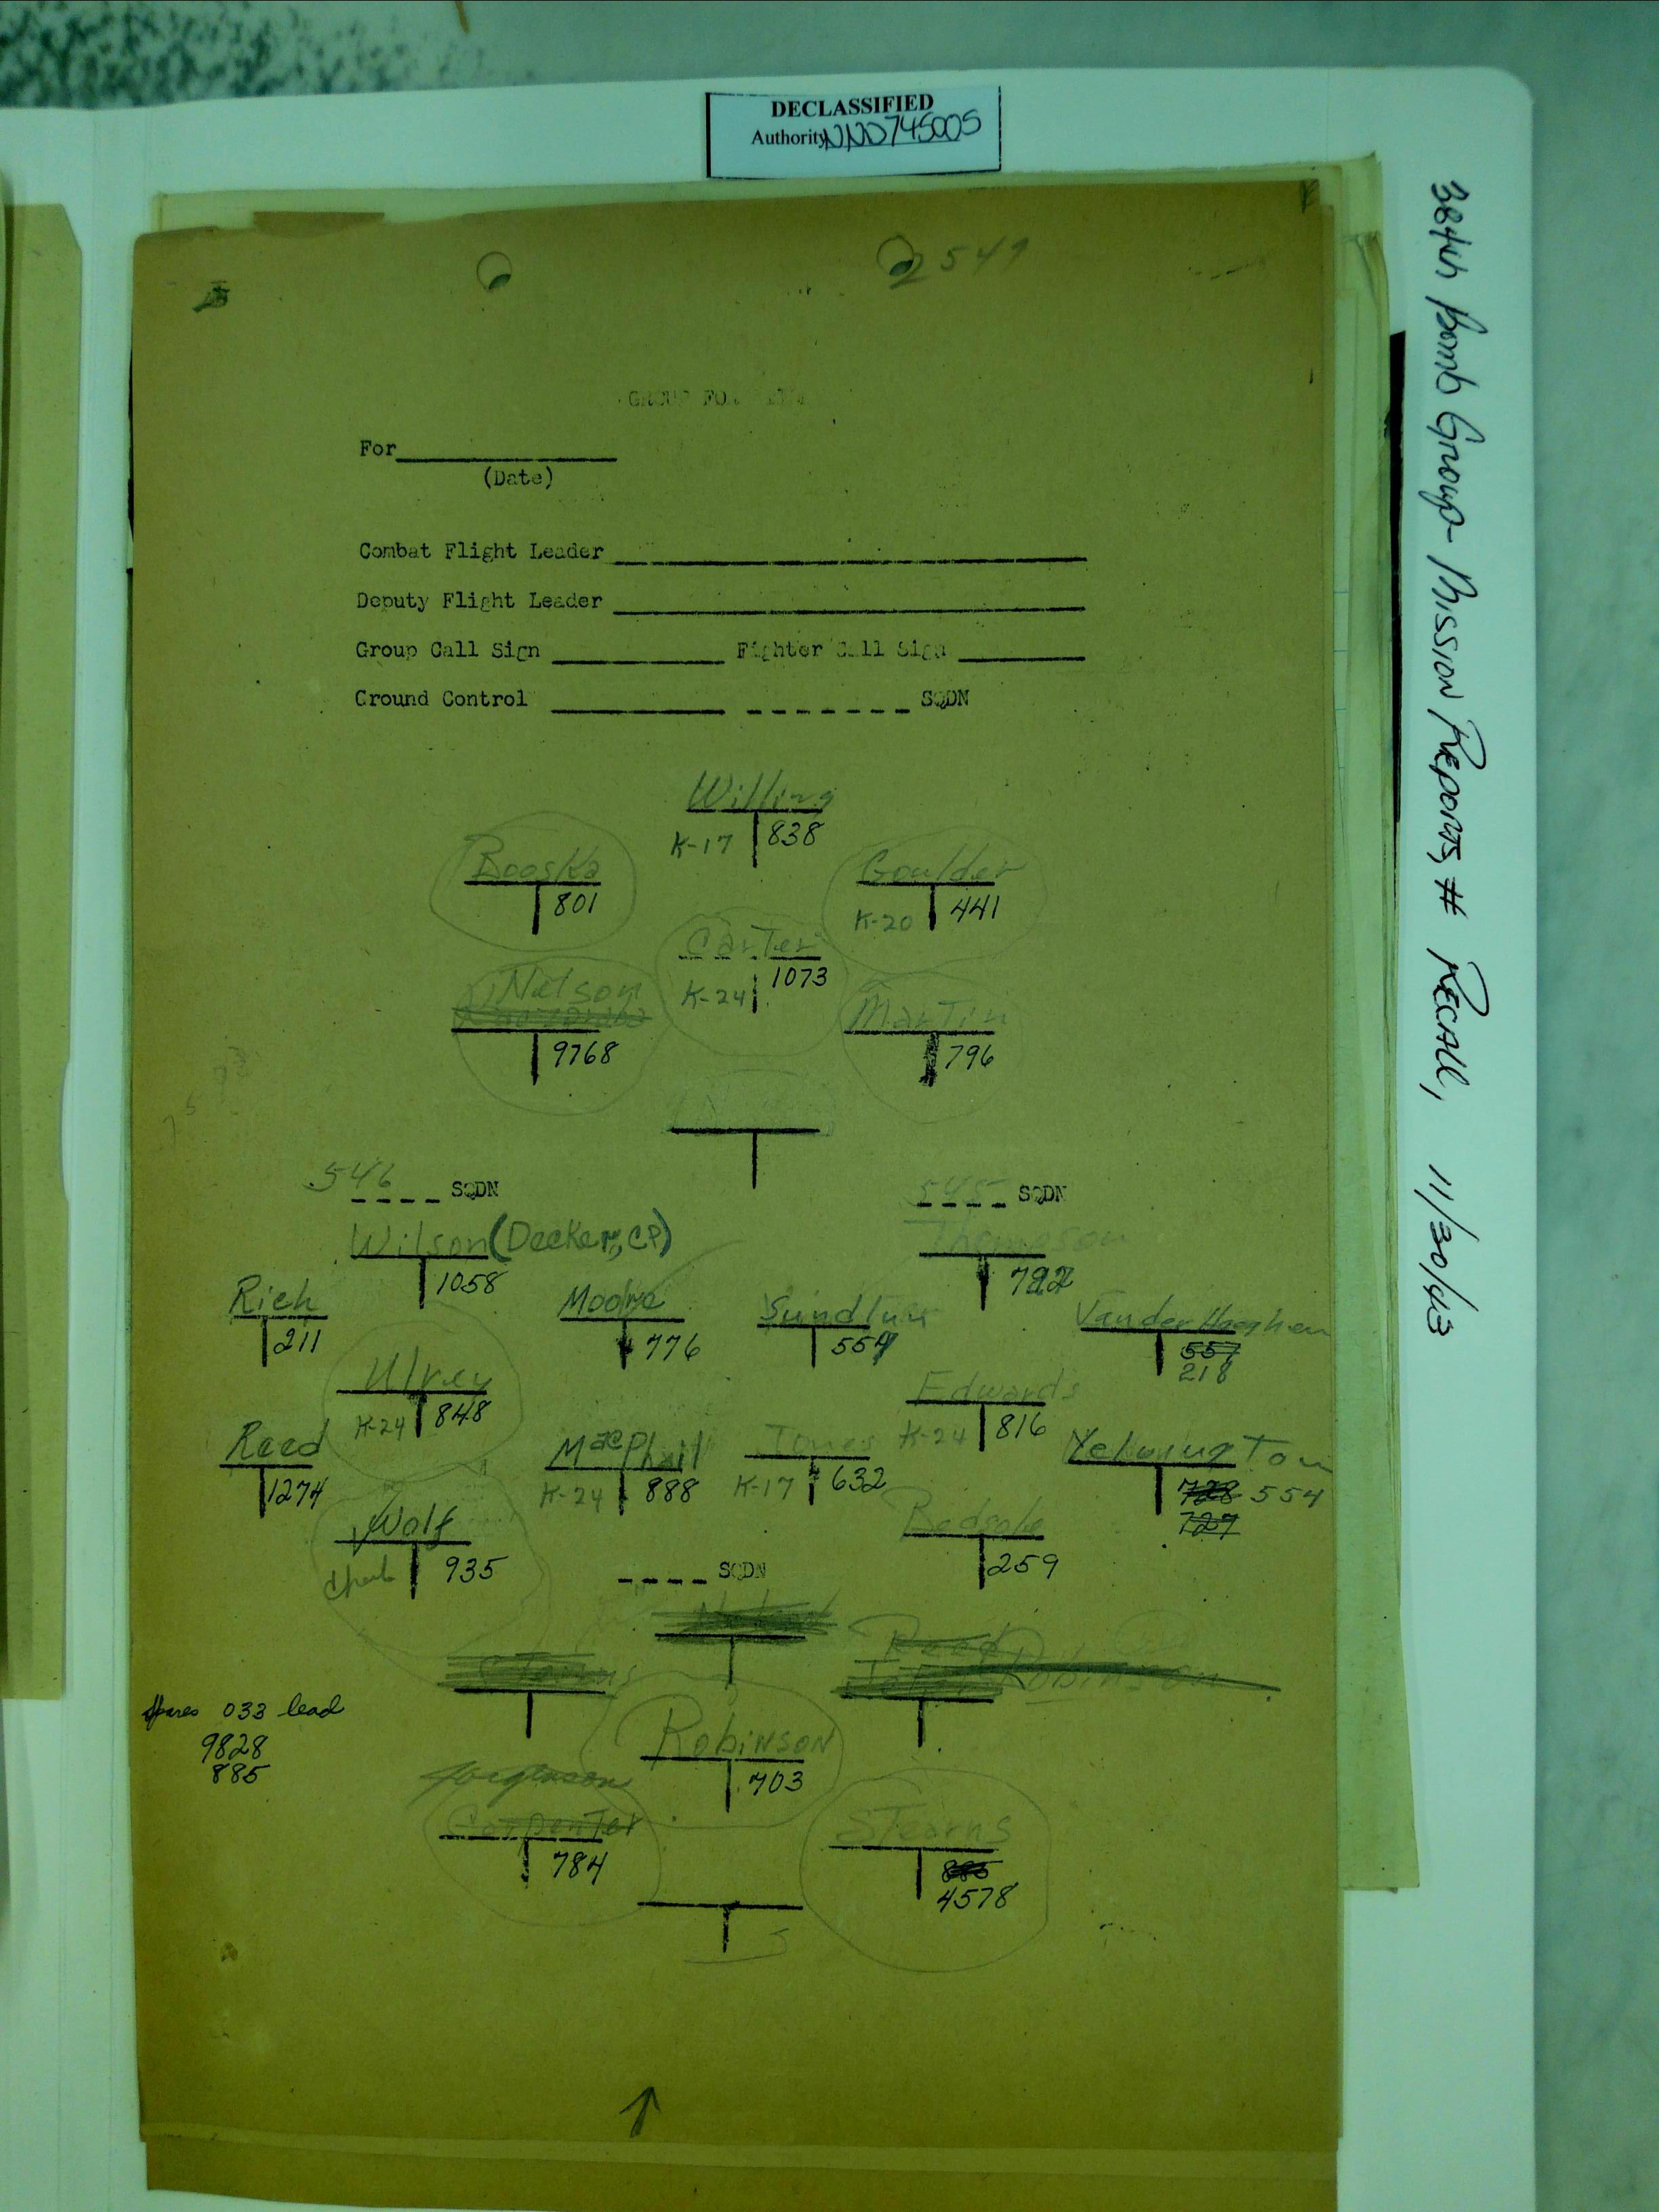 DECLASSIFIED
Authority NND745005
384th Bomb Group - Mission Reports, # Recall, 11/30/43
2549
GROUP
For
(Date)
Combat Flight Leader
Deputy Flight Leader
Group Call Sign Fighter Call Sign
Ground Control SQDN
Willing
K-17 838
Booska
801
Goulder
K-20 441
Carter
K-24 1073
Nelson
9768
Martin
796
546 SQDN
545 SQDN
Wilson (Decker, CP)
1058
Thompson
792
Rich
211
Moore
776
Sundlun
557
VanderHaeghen
557
218
Ulrey
K-24 848
Edwards
K-24 816
Reed
1274
MacPhail
K-24 888
Jones
K-17 632
Yelvington
728 554
727
Wolf
935
Bedsole
259
SQDN
Nelson
Stearns
Reed
Robinson
Spares 033 lead
9828
885
Robinson
703
Jorgenson
Carpenter
784
Stearns
885
4578